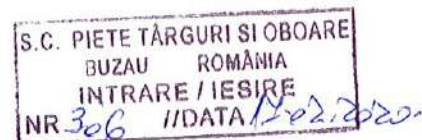 S.C. PIETE TÂRGURI SI OBOARE
BUZAU ROMÂNIA
INTRARE / IESIRE
NR 306 //DATA 17.02.2020